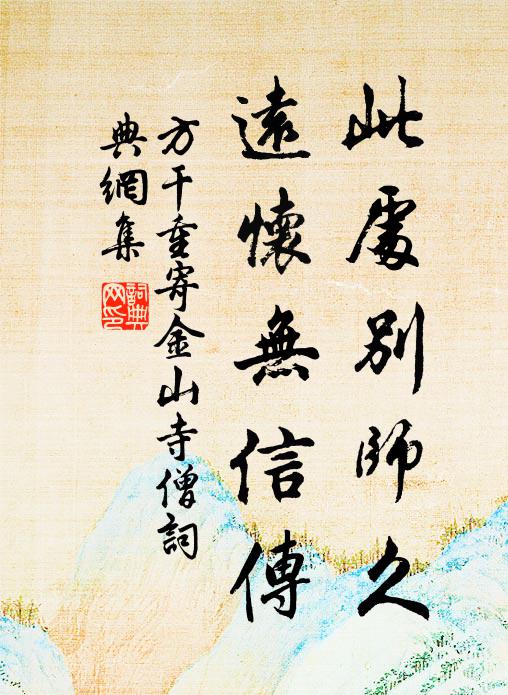 此處別師久
遠懷無信傳
方干重寄金山寺僧詞
典網集
詞典
网印